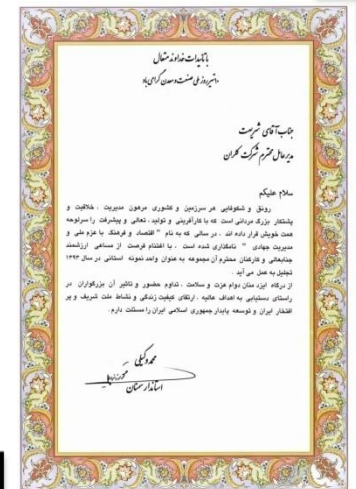 با تائیدات خداوند متعال
دهم تیر روز ملی صنعت و معدن گرامی باد
جناب آقای شریعت
مدیر عامل محترم شرکت کلران
سلام علیکم
رونق و شکوفایی هر سرزمین و کشوری مرهون مدیریت ، خلاقیت و
پشتکار بزرگ مردانی است که با کارآفرینی و تولید ، تعالی و پیشرفت را سرلوحه
همت خویش قرار داده اند . در سالی که به نام " اقتصاد و فرهنگ با عزم ملی و
مدیریت جهادی " نامگذاری شده است ، با اغتنام فرصت از مساعی ارزشمند
جنابعالی و کارکنان محترم آن مجموعه به عنوان واحد نمونه استانی در سال ۱۳۹۳
تجلیل به عمل می آید .
از درگاه ایزد منان دوام عزت و سلامت ، تداوم حضور و تاثیر آن بزرگواران در
راستای دستیابی به اهداف عالیه ، ارتقای کیفیت زندگی و نشاط ملت شریف و پر
افتخار ایران و توسعه پایدار جمهوری اسلامی ایران را مسئلت دارم .
محمد وکیلی
استاندار سمنان